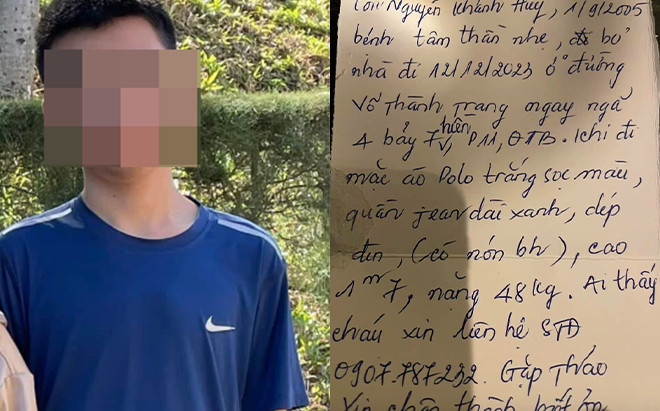 Tôi Nguyễn Khánh Huy, 1/9/2005
bệnh tâm thần nhẹ, bỏ
nhà đi 12/12/2023 ở đường
Võ Thành Trang ngay ngã
4 bảy Hiền, P11, QTB. Khi đi
mặc áo Polo trắng sọc màu,
quần jean dài xanh, dép
đen, (có nón bh), cao
1m7, nặng 48kg. Ai thấy
cháu xin liên hệ SĐT
0907.787232. Gặp Thảo
Xin chân thành